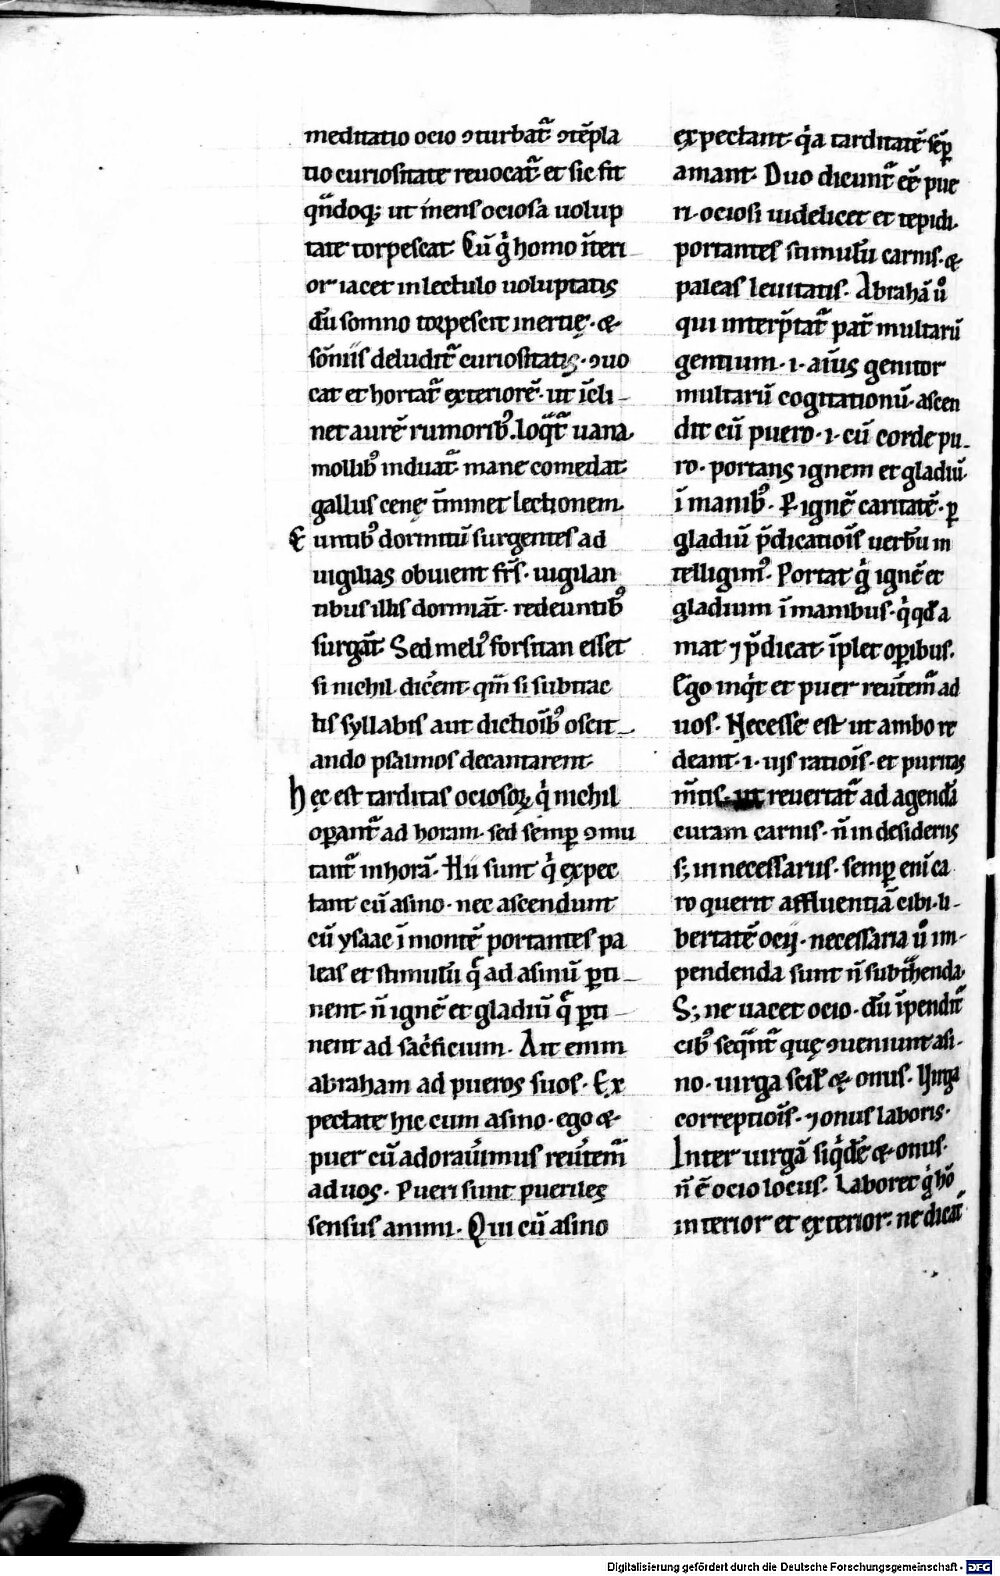 meditatio ocio ꝯturbat᷑ ꝯte̅pla
tio curiositate reuocat᷑ et sic fit
qn̅doq; ut mens ociosa uolup
tate torpescat. Cu̅ gͥ homo ı̅teri
or iacet in lectulo uoluptatis
du̅ somno torpescit inertię. &
so̅niis deludit᷑ curiositatis. ꝯuo
cat et hortat᷑ exteriore̅. ut ı̅cli
net aure̅ rumorib᷒. loq̅t᷑ uana.
mollib᷒ induat᷑. mane comedat.
gallus cenę ti̅met lectionem.
Euntib᷒ dormitu̅ surgentes ad
uigilias obuient fr̅s. uigilan
tibus illis dormia̅t. redeuntib᷒
surga̅t. Sed meli᷒ forsitan esset
si nichil dice̅nt. qm̅ si subtrac
tis syllabis aut dictio̅ib᷒ oscit
ando psalmos decantarent.
hęc est tarditas ociosoꝝ qͥ nichil
oꝑant᷑ ad horam. sed semꝑ ꝯmu
tant᷑ in hora̅. Hii sunt qͥ expec
tant cu̅ asino. nec ascendunt
cu̅ ysaac ı̅ monte̅ portantes pa
leas et stimulu̅ qᷓ ad asinu̅ ꝑti
nent. n̅ igne̅ et gladiu̅ qᷓ ꝑti
nent ad sac̅ficium. Ait enim
abraham ad pueros suos. Ex
pectate hic cum asino. ego &
puer cu̅ adorau̅imus reu̅tem᷑
ad uos. Pueri sunt pueriles
sensus animi. Qui cu̅ asino
expectant qͥa tarditate̅ se̅ꝑ
amant. Duo dicunt᷑ e̅e̅ pue
ri. ociosi uidelicet et tepidi.
portantes stimulu̅ carnis. &
paleas leuitatis. Abraha̅ uͦ
qui interp̅tat᷑ pat᷑ multaru̅
gentium. i. ai̅us genitor
multaru̅ cogitationu̅. ascen
dit cu̅ puero. i. cu̅ corde pu
ro. portans ignem et gladiu̅.
ı̅ manib᷒. Ꝑ igne̅ caritate̅. ꝑ
gladiu̅ p̅dicatio̅is uerbu̅ in
telligim᷒. Portat gͥ igne̅ et
gladium ı̅ manibus. qͥ qd̅ a
mat ⁊ p̅dicat. ı̅plet oꝑibus.
Ego inqͥt et puer reu̅tem᷑ ad
uos. Necesse est ut ambo re
deant. i. uis ratio̅is. et puritas
m̅tis. ut reuertat᷑ ad agenda̅
curam carnis. n̅ in desideriis
s; in necessariis. semꝑ eni̅ ca
ro querit affluentia̅ cibi. li
bertate̅ ocij. necessaria uͦ im
pendenda sunt n̅ subt͛henda.
S; ne uacet ocio. du̅ ı̅pendit᷑
cib᷒ seqn̅t᷑ quę ꝯueniunt asi
no. uirga scil̅ & onus. Uirga
correptio̅is. ⁊ onus laboris.
Inter uirga̅ siqͥde̅ & onus.
n̅ e̅ ocio locus. Laboret gͥ ho̅
interior et exterior. ne dicat᷑
Digitalisierung gefördert durch die Deutsche Forschungsgemeinschaft - DFG